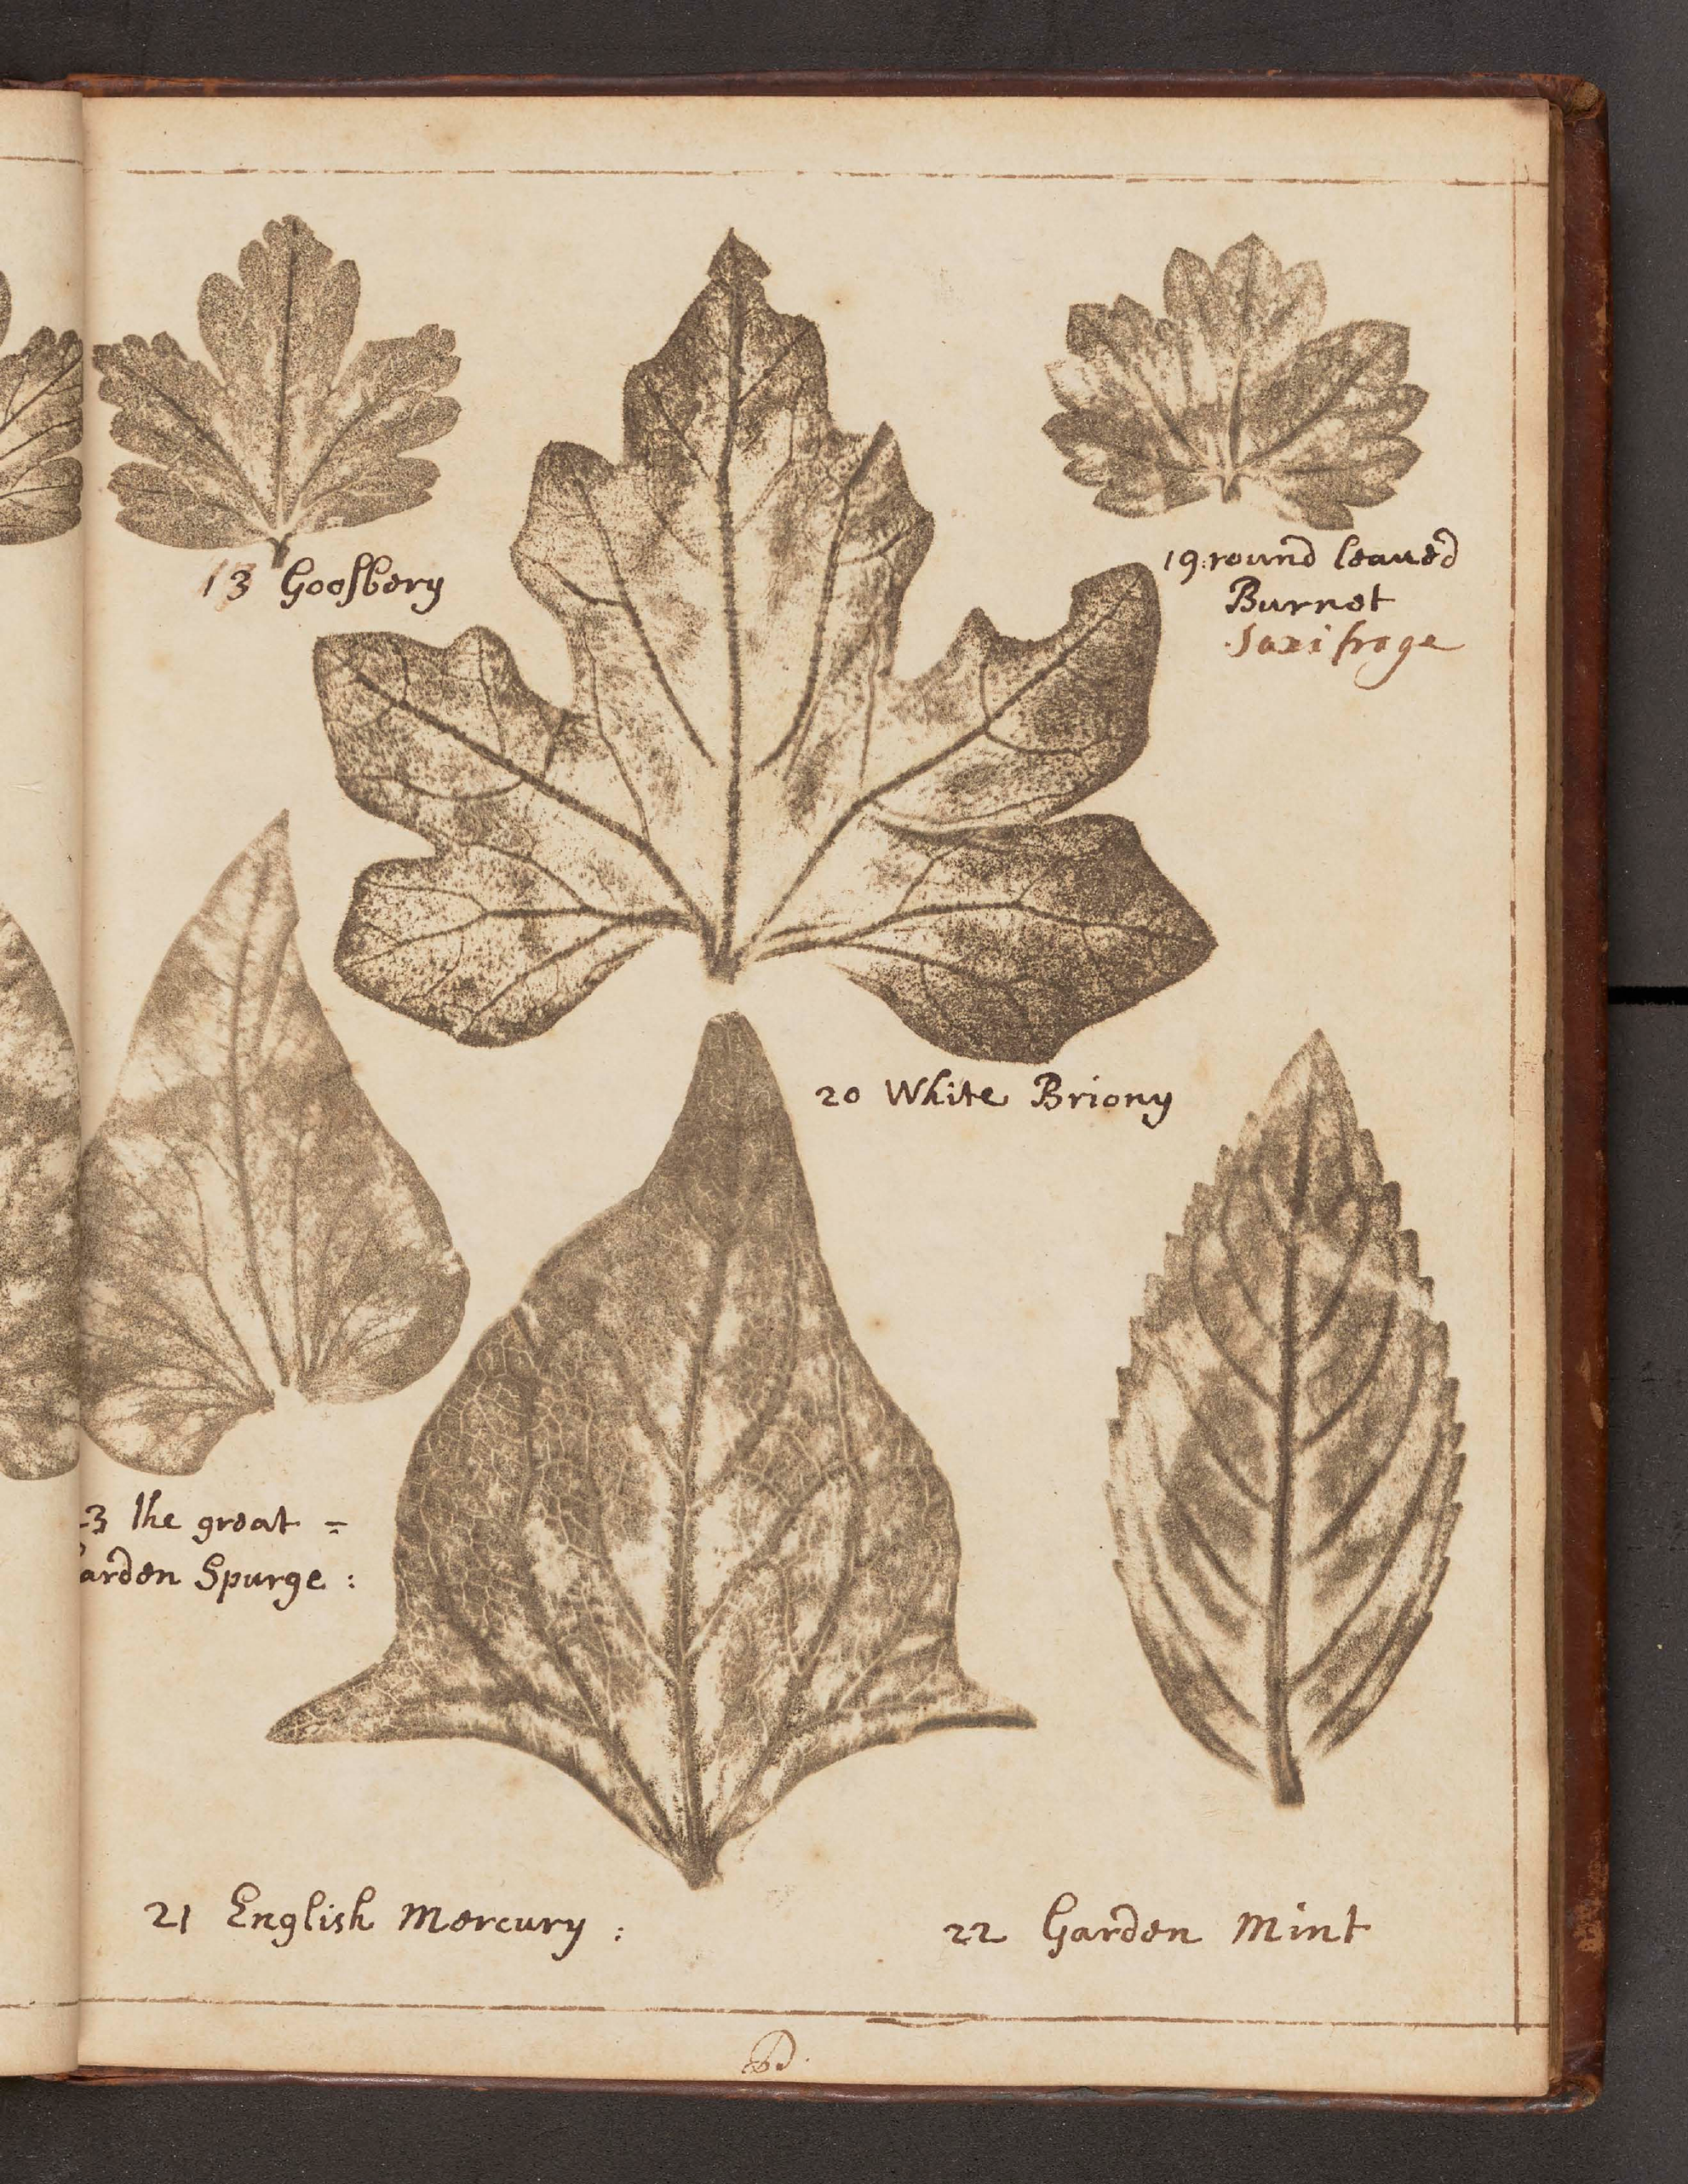 13 Goosbery
19: round leaued
Burnet
Saxifrage
20 White Briony
3 the great =
arden Spurge :
21 English Mercury :
22 Garden Mint